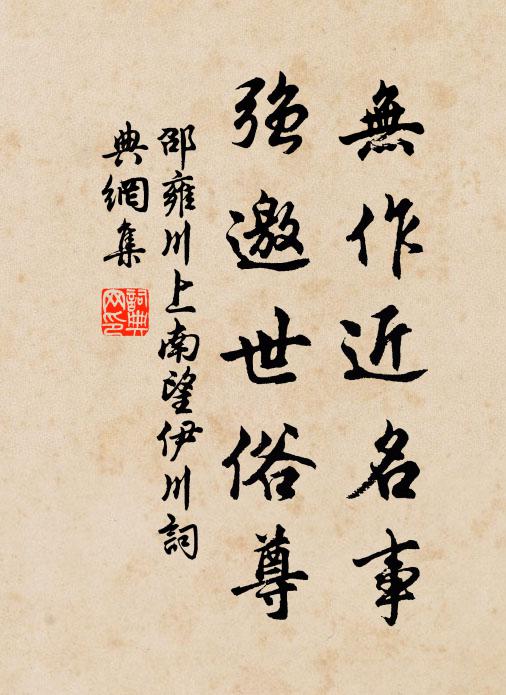 無作近名事
強邀世俗尊
邵雍川上南望伊川詞
典網集
詞典
网印